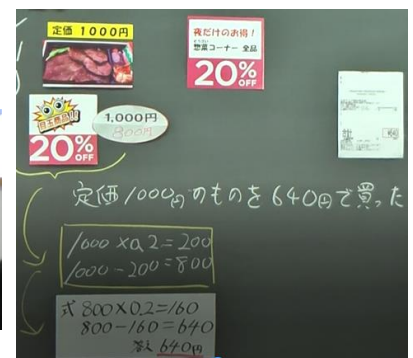 定価 1000円
夜だけのお得!
惣菜コーナー 全品
20%OFF
目玉商品!!
20%OFF
1,000円
800円
定価1000円のものを640円で買った
1000×0.2=200
1000-200=800
式 800×0.2=160
800-160=640
答え 640円